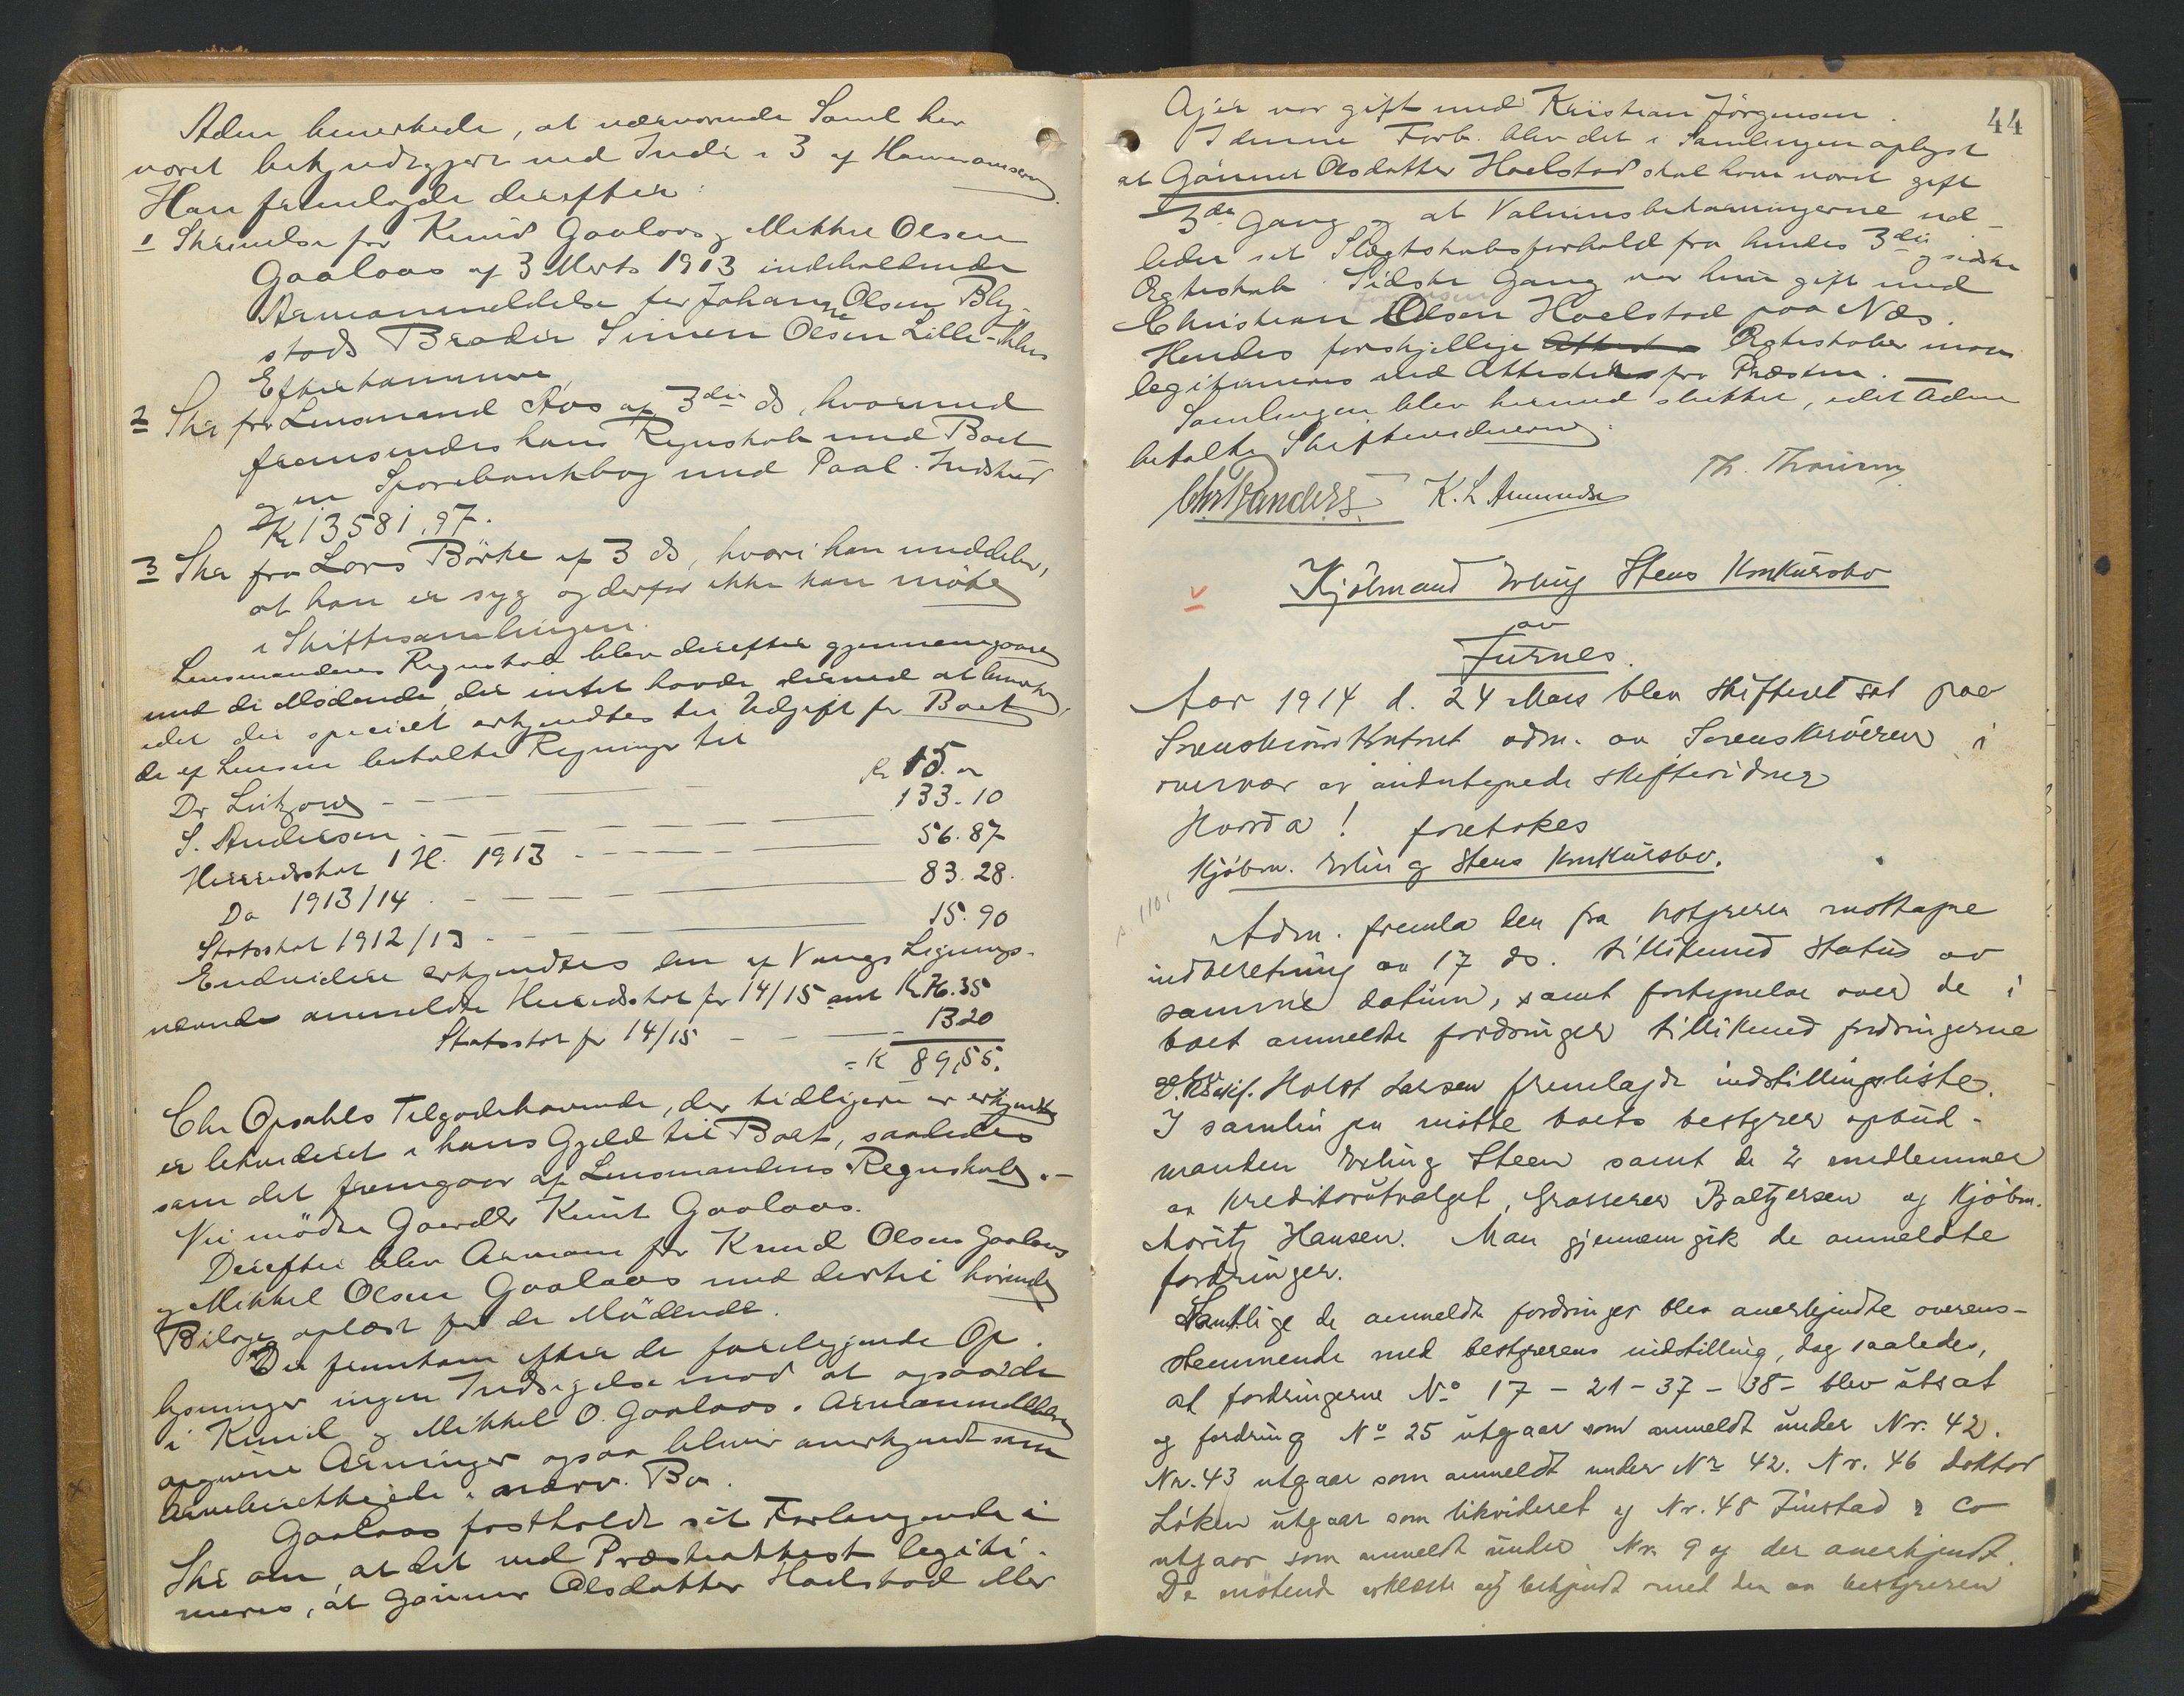 Adm bemerkede, at nærværende Saml har
været bekjendtgjort ved Indr i 3 af Hamaravisern
Han fremlagde derefter:
1 Skrivelse fra Knud Gaalaas og Mikkel Olsen
Gaalaas af 3 Marts 1913 indeholdende
Arvanmeldelse for Johanne Olsen Bly-
stads Broder Simen Olsen Lille-
Efterkommere
2 Skr fra Lensmand Aas af 3die ds, hvormed
fremsendes hans Regnskab med Boet
og en Sparebankbog med Paal. Indskud
Kr 13581,97.
3 Skr fra Lars Börke af 3 ds, hvori han meddeler,
at han er syg og derfor ikke kan möde
i Skiftesamlingen.
Lensmandens Regnskab blev derefter gjennemgaaet
med de Mödende, der intet havde dermed at bemærke,
idet der specielt erkjendtes til Udgift for Boet
de af Lensm betalte Regninger til
Dr Lützow - Kr 15.
S. Andersen - 133.10
Herredsskat 1 H. 1913 - 56.87
Do 1913/14 - 83.28.
Statsskat 1912/13 - 15.90
Endvidere erkjendtes den af Vangs Lignings-
nævnde anmeldte Herredsskat for 14/15 med Kr 76.35
Statsskat for 14/15 - 13 20
= K 89,55.
Chr Opsahls Tilgodehavende, der tidligere er erkjendt
er likvideret i hans Gjæld til Boet, saaledes
som det fremgaar af Lensmandens Regnskab.-
Nu mödte Gaardbr Knut Gaalaas.
Derefter blev Arvanm for Knud Olsen Gaalaas
og Mikkel Olsen Gaalaas med dertil hörende
Bilage oplæst for de Mödende.
Der fremkom efter de foreliggende Op-
lysninger ingen Indsigelse mod at ogsaa de
i Knud og Mikkel O. Gaalaas. Arvanmeldelse
opgivne Arvinger ogsaa bliver anerkjendt som
Arveberettigede i nærv. Bo.
Gaalaas fastholdt sit Forlangende i
Skr om, at det ved Præsteattest legiti-
meres, at Gönner Olsdatter Hoelstad eller
44
Ajer var gift med Kristian Jörgensen.
I denne Forb. blev det i Samlingen oplyst
at Gönner Olsdatter Hoelstad skal have været gift
3de Gang og at Valmins ud-
leder sit Slægtskabsforhold fra hendes 3die og sidste
Ægteskab. Sidste Gang var hun gift med
Christian Olsen Hoelstad paa Næs.
Hendes forskjellige Ægteskaber maa
legitimeres ved Attester fra Præsten.
Samlingen blev hermed sluttet, idet Adm
betalte Skiftevidnerne.
Chr Randers K. L Amundsen Th. Thoresen
v Kjöbmand Erling Stens Konkursbo
av
Furnes.
Aar 1914 d. 24 Mars blev skifteret sat paa
Sorenskriverkontoret adm. av Sorenskriveren i
overvær av undertegnede skiftevidner
Hvorda! foretokes
Kjöbm. Erling Stens Konkursbo.
Adm. fremla den fra bestyreren mottagne
indberetning av 17 ds. tillikemed status av
samme datum, samt fortegnelse over de i
boet anmeldte fordringer tillikemed fordringerne
Holst Larsen fremlagde indstillingsliste.
I samlingen mötte boets bestyrer opbud-
manden Erling Steen samt de 2 medlemmer
av kreditorutvalget, Grosserer Baltzersen og Kjöbm.
Moritz Hansen. Man gjennemgik de anmeldte
fordringer.
Samtlige de anmeldte fordringer blev anerkjendte overens-
stemmende med bestyrerens indstilling, dog saaledes,
at fordringerne No 17 - 21 - 37 - 38 - blev utsat
og fordring No 25 utgaar som anmeldt under Nr. 42.
Nr. 43 utgaar som anmeldt under Nr 42. Nr. 46 doktor
Löken utgaar som likvideret og Nr. 48 Finstad & Co
utgaar som anmeldt under Nr 9 og der anerkjendt.
De mötende erklærte sig bekjendt med den av bestyreren